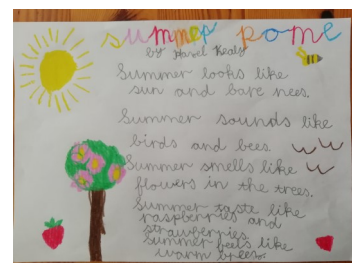 summer pome
by Hazel Kealy
Summer looks like
sun and bare nees.
Summer sounds like
birds and bees.
Summer smells like
flowers in the trees.
Summer taste like
raspberries and
strawberries.
Summer feels like
warm brees.